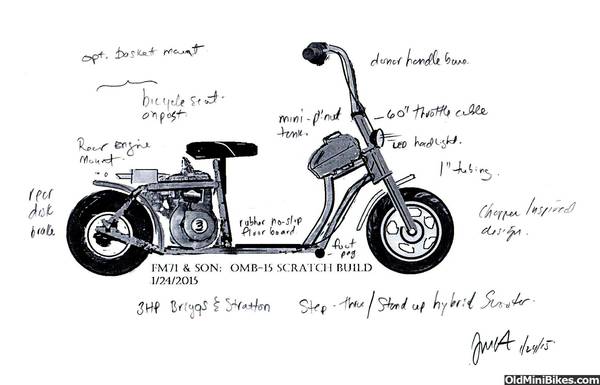 opt. Basket mount
donor handle bars.
bicycle seat
on post.
mini-p'nut
tank.
60" throttle cable
LED headlight.
Rear Engine
Mount.
1" tubing.
rear
disk
brake
3
rubber no-slip
floor board
foot
peg
Chopper Inspired
design.
FM71 & SON: OMB-15 SCRATCH BUILD
1/24/2015
3HP Briggs & Stratton
Step-thru/Stand up hybrid Scooter.
1/24/15
OldMiniBikes.com